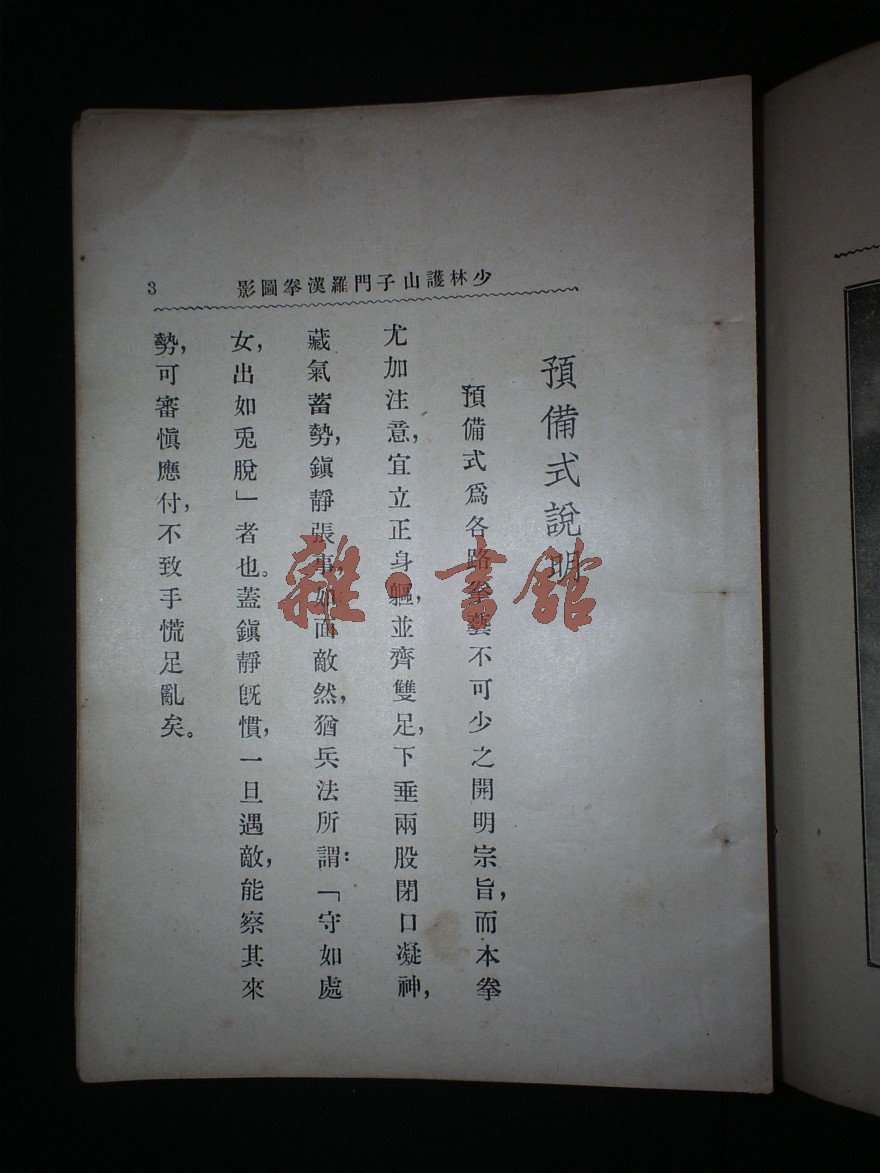 少林護山子門羅漢拳圖影
3
預備式說明
預備式爲各路拳藝不可少之開明宗旨，而本拳
尤加注意，宜立正身軀，並齊雙足，下垂兩股閉口凝神，
藏氣蓄勢，鎭靜張事，如面敵然，猶兵法所謂：「守如處
女，出如兎脫」者也。蓋鎭靜旣慣，一旦遇敵，能察其來
勢，可審愼應付，不致手慌足亂矣。
雜·書館